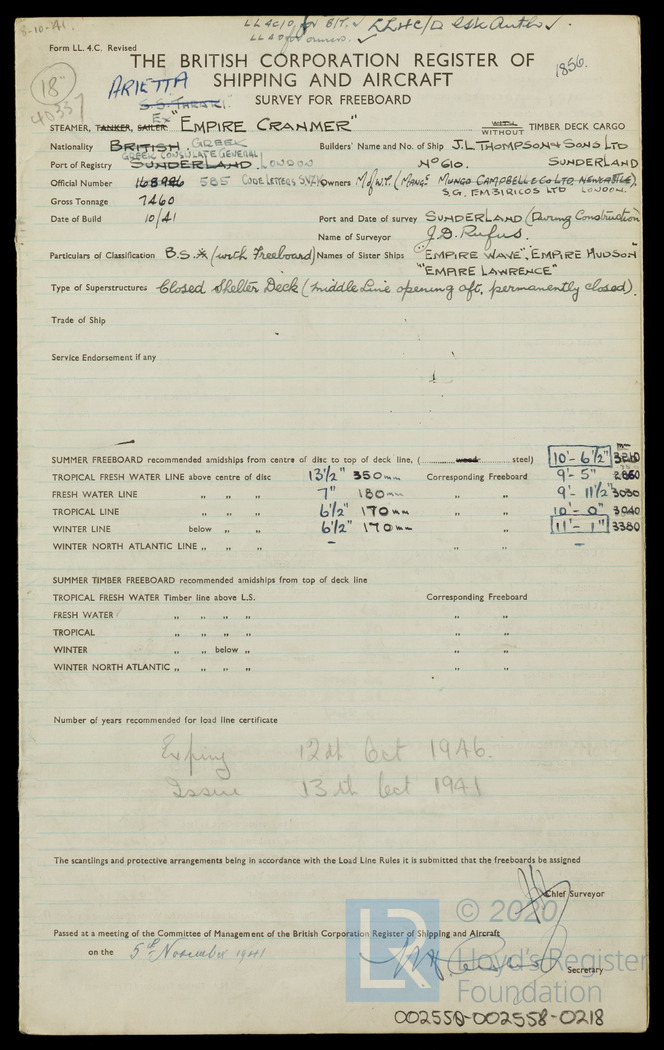 8-10-41.
LL4C/D for B/T. ✓ LLHC/D
LL4D for owners. ✓
Form LL. 4.C. Revised
THE BRITISH CORPORATION REGISTER OF
SHIPPING AND AIRCRAFT
SURVEY FOR FREEBOARD
18"
40337
1856.
ARIETTA
Ex
STEAMER, TANKER, SAILER. "EMPIRE CRANMER" WITH WITHOUT TIMBER DECK CARGO
Nationality BRITISH GREEK Builders' Name and No. of Ship J.L THOMPSON & SONS LTD
GREEK CONSULATE GENERAL
Port of Registry SUNDERLAND, LONDON No 610. SUNDERLAND
Official Number 168996 585 CODE LETTERS Owners M of W.T. (MANGs MUNGO CAMPBELL & Co LTD, NEWCASTLE).
S.G. EMBIRICOS LTD LONDON.
Gross Tonnage 7460
Date of Build 10/41 Port and Date of survey SUNDERLAND (During Construction
Name of Surveyor J.D. Rufus.
Particulars of Classification B.S.* (with Freeboard) Names of Sister Ships "EMPIRE WAVE", "EMPIRE HUDSON"
"EMPIRE LAWRENCE"
Type of Superstructures Closed Shelter Deck (middle Line opening aft, permanently closed).
Trade of Ship
Service Endorsement if any
mm
SUMMER FREEBOARD recommended amidships from centre of disc to top of deck line, (............wood............steel) 10'- 6½" 3210
TROPICAL FRESH WATER LINE above centre of disc 13½" 350mm Corresponding Freeboard 9'- 5" 2860
FRESH WATER LINE " " " 7" 180mm " " 9'- 11½" 3030
TROPICAL LINE " " " 6½" 170mm " " 10'- 0" 3040
WINTER LINE below " " 6½" 170mm " " 11'- 1" 3380
WINTER NORTH ATLANTIC LINE " " " – " " –
SUMMER TIMBER FREEBOARD recommended amidships from top of deck line
TROPICAL FRESH WATER Timber line above L.S. Corresponding Freeboard
FRESH WATER " " " " " "
TROPICAL " " " " " "
WINTER " " below " " "
WINTER NORTH ATLANTIC " " " " " "
Number of years recommended for load line certificate
Expiry 12th Oct 1946.
Issue 13th Oct 1941
The scantlings and protective arrangements being in accordance with the Load Line Rules it is submitted that the freeboards be assigned
Chief Surveyor
Passed at a meeting of the Committee of Management of the British Corporation Register of Shipping and Aircraft
on the 5th November 1941
Secretary
LR
© 2020
Lloyd's Register
Foundation
002550-002558-0218